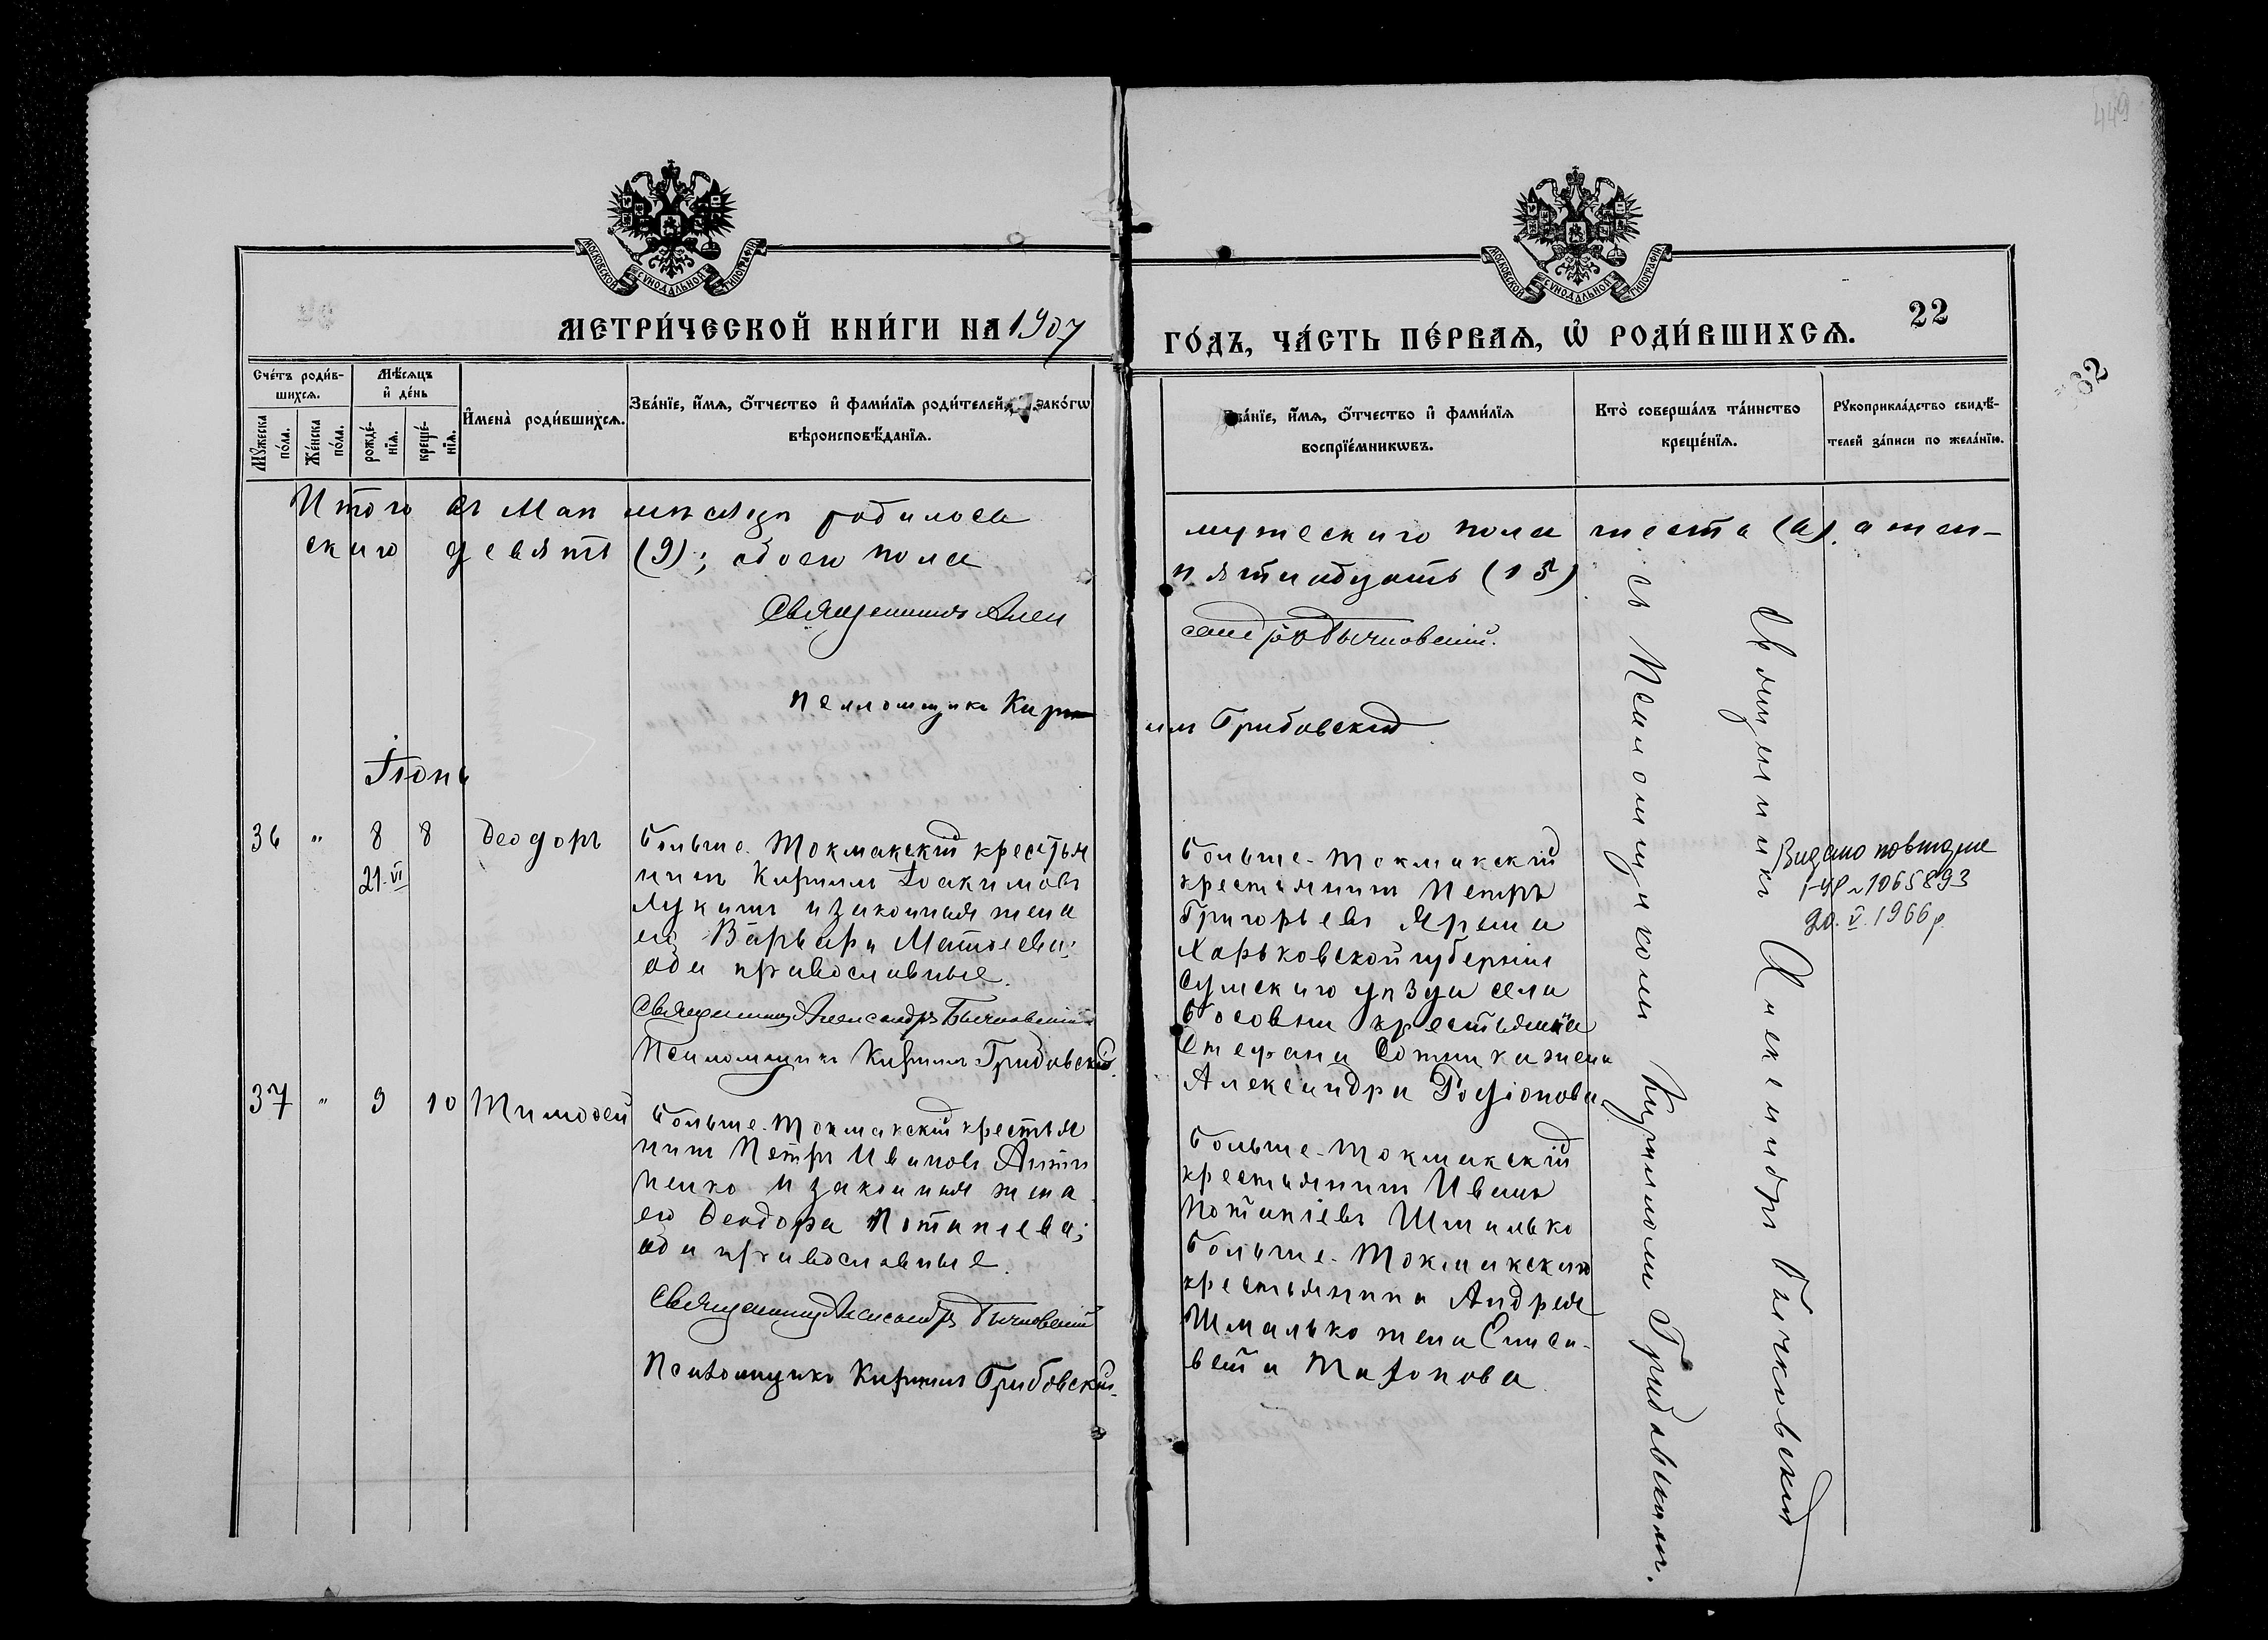 449
МОСКОВСКОЙ СѴНОДАЛЬНОЙ ТИПОГРАФІИ
МОСКОВСКОЙ СѴНОДАЛЬНОЙ ТИПОГРАФІИ
МЕТРИ́ЧЕСКОЙ КНИ́ГИ НА 1907
ГО́ДЪ, ЧА́СТЬ ПЕ́РВАѦ, Ѡ РОДИ́ВШИХСѦ.
22
Сче́тъ роди́в-
шихсѧ.
Мѣ́сѧцъ
и҆ де́нь
Мꙋ́жеска
по́ла.
Же́нска
по́ла.
рожде́-
нїѧ.
креще́-
нїѧ.
И҆мена̀ роди́вшихсѧ.
Зва́нїе, и҆́мѧ, ѻ҆́тчество и҆ фами́лїѧ роди́телей, закѡ́гѡ
вѣроисповѣ́данїѧ.
Зва́нїе, и҆́мѧ, ѻ҆́тчество и҆ фами́лїѧ
воспрїе́мникѡвъ.
Кто̀ соверша́лъ та́инство
креще́нїѧ.
Рꙋкоприкла́дство свидѣ́-
телей за́писи по жела́нїю.
Итого въ Маѣ мѣсяцѣ родилось мужескаго пола шесть (6), а жен-
скаго девять (9); обоего пола пятнадцать (15)
Священникъ Александръ Бычковскій.
Псаломщикъ Кириллъ Грибовскій
Іюнь
36 " 8 8 Ѳеодоръ
21. VI
Больше-Токмакскій крестья
нинъ Кириллъ Іоакимовъ
Лукашъ и законная жена
его Варвара Матѳеева;
оба православные.
Священникъ Александръ Бычковскій
Псаломщикъ Кириллъ Грибовскій.
Больше-Токмакскій
крестьянинъ Петръ
Григорьевъ Ярема
Харьковской губерніи
Сумскаго уѣзда села
крестьянина
Стефана Сотника жена
Александра Родіонова
Видано повторне
20. V. 1966 р.
37 " 9 10 Тимоѳей
Больше-Токмакскій крестья
нинъ Петръ Ивановъ Анти
пенко и законная жена
его Ѳеодора Потапіева;
оба православные.
Священникъ Александръ Бычковскій
Псаломщикъ Кириллъ Грибовскій.
Больше-Токмакскій
крестьянинъ Иванъ
Потапіевъ Шмалько
Больше-Токмакскаго
крестьянина Андрея
Шмалько жена Елиса-
вета
Священникъ Александръ Бычковскій
съ Псаломщикомъ Кирилломъ Грибовскимъ.